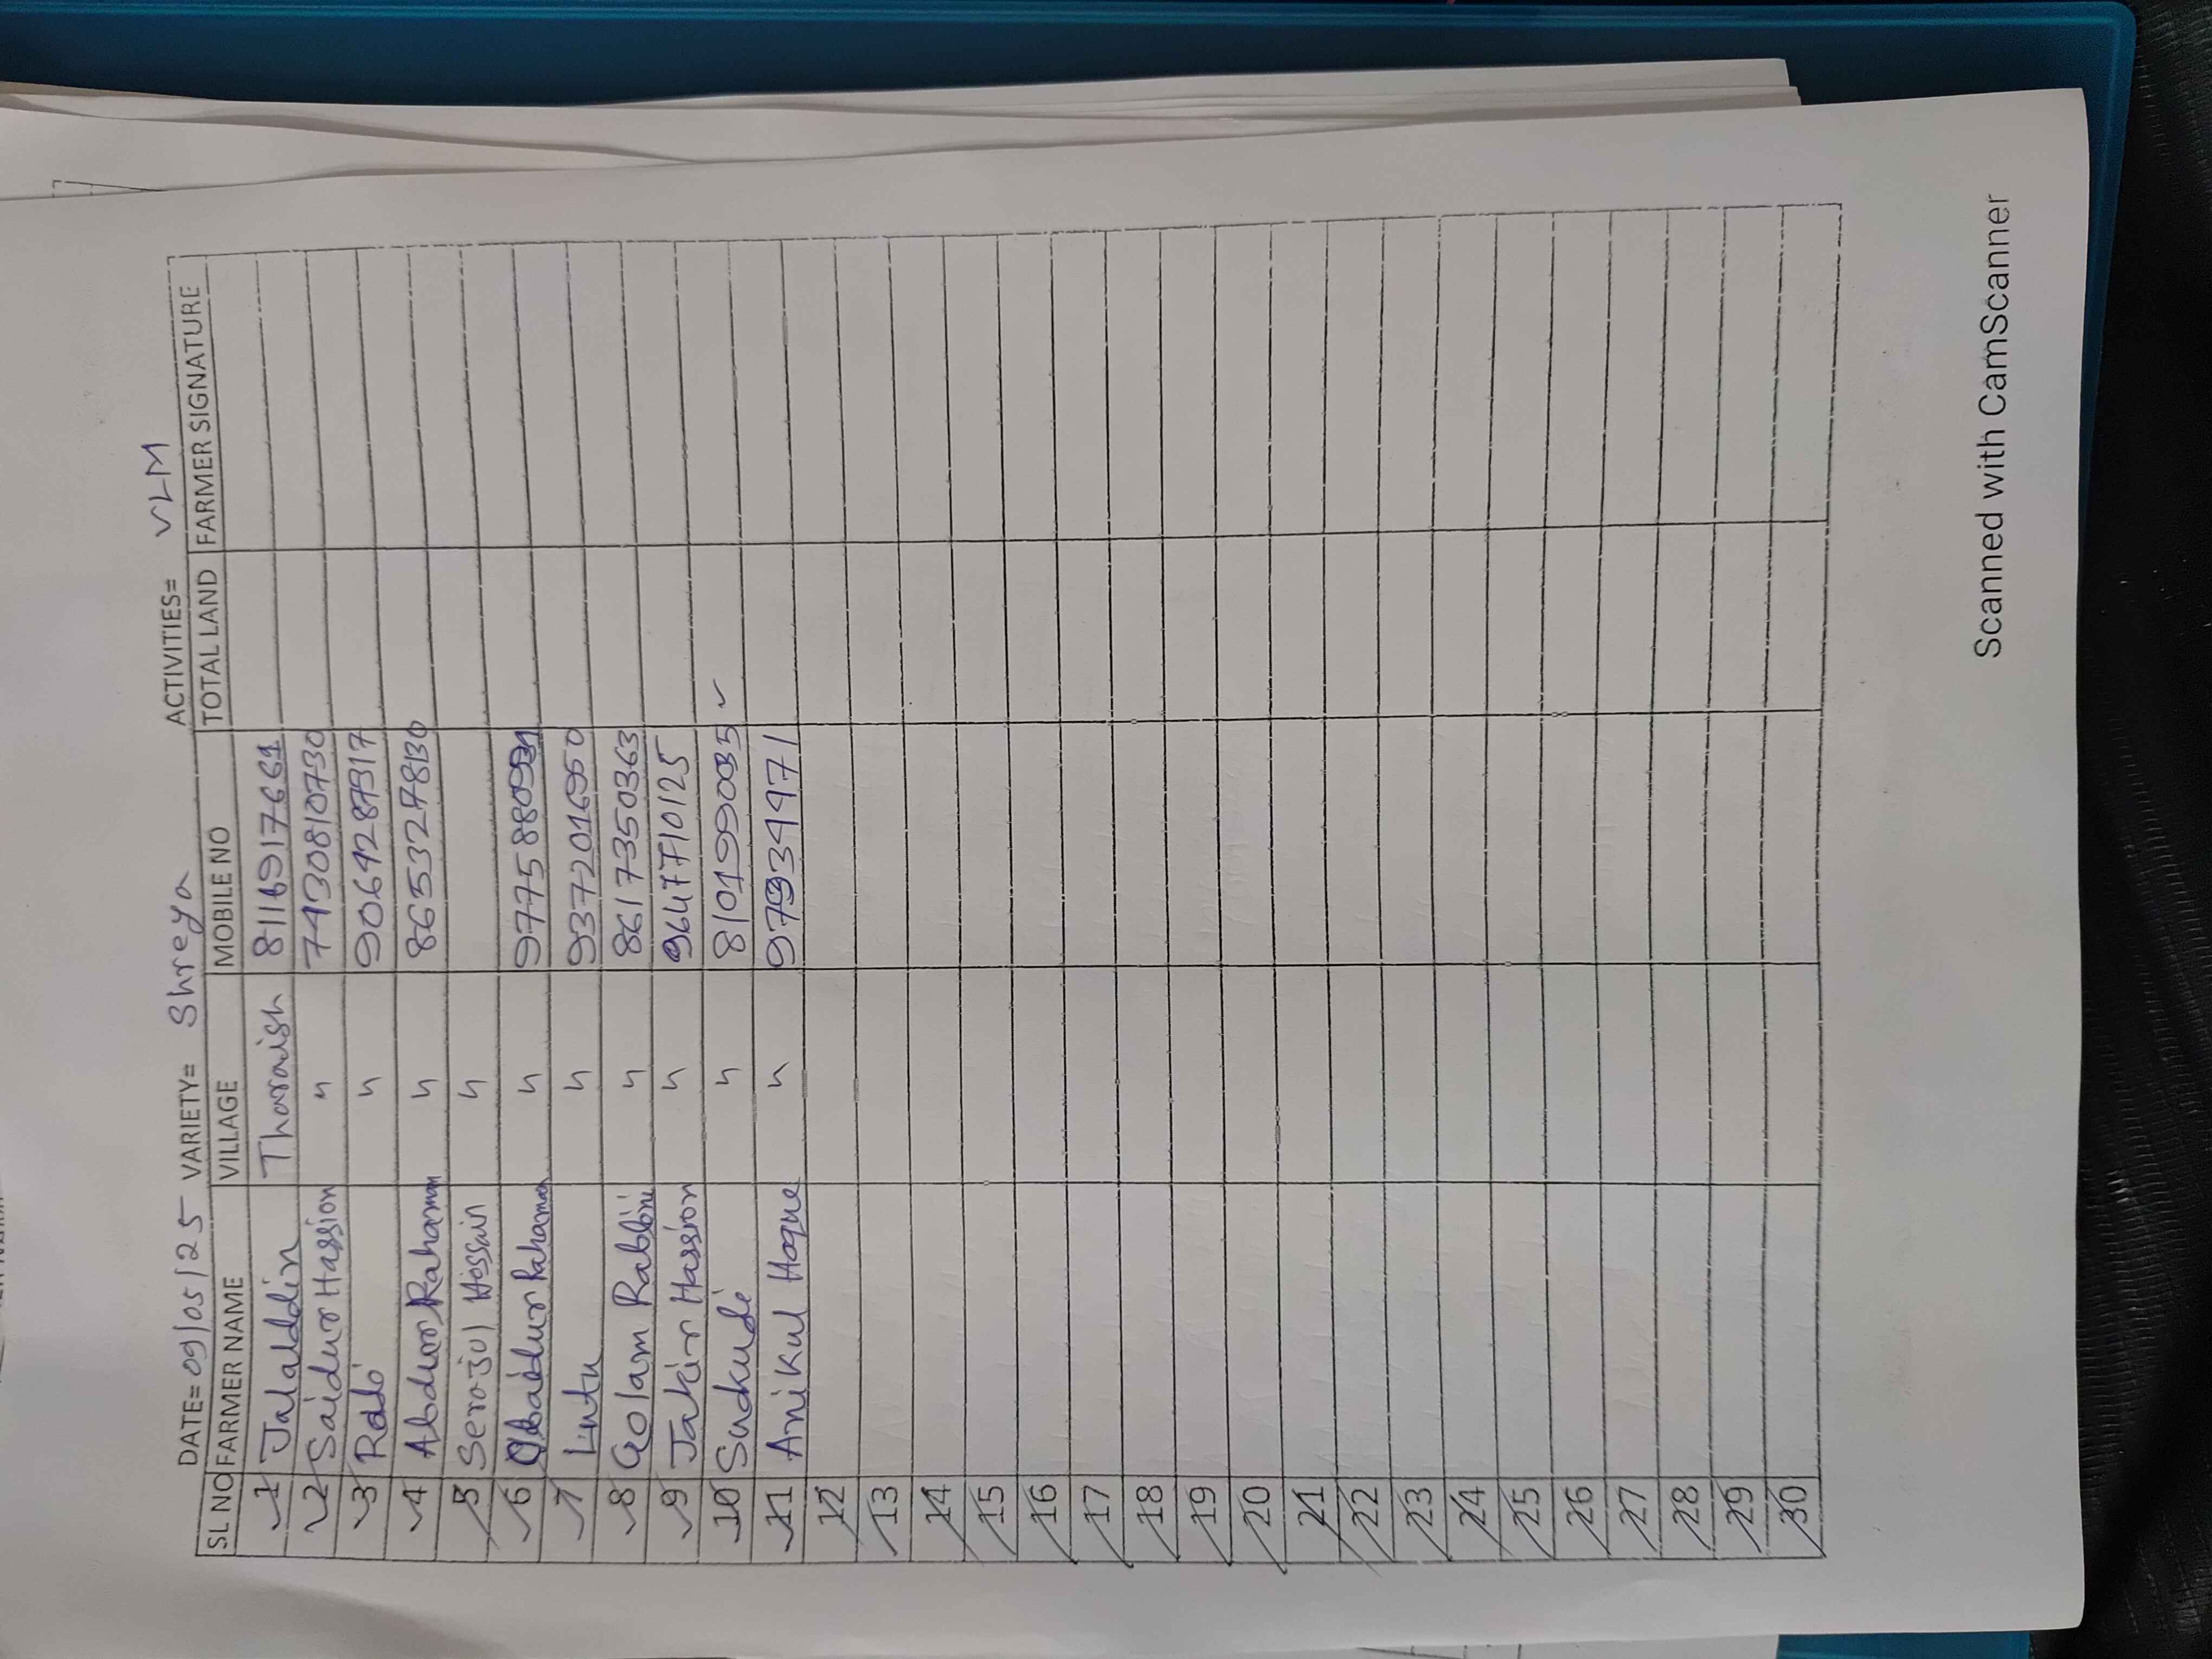 DATE= 09/05/25 VARIETY= Shreya ACTIVITIES= VLM
SL NO FARMER NAME VILLAGE MOBILE NO TOTAL LAND FARMER SIGNATURE
1 Jalalddin Tharaish 8116917661
2 Saidur Hassion " 7430810730
3 " 9064287317
4 Abdur Rahaman " 8653278130
5 Serajul Hossain "
6 Obaidur Rahaman "
7 Lutu " 9372016950
8 Golam Rabbini " 8617350363
9 Jakir Hassion " 9647710125
10 "
11 Anikul Hoque "
12
13
14
15
16
17
18
19
20
21
22
23
24
25
26
27
28
29
30
Scanned with CamScanner